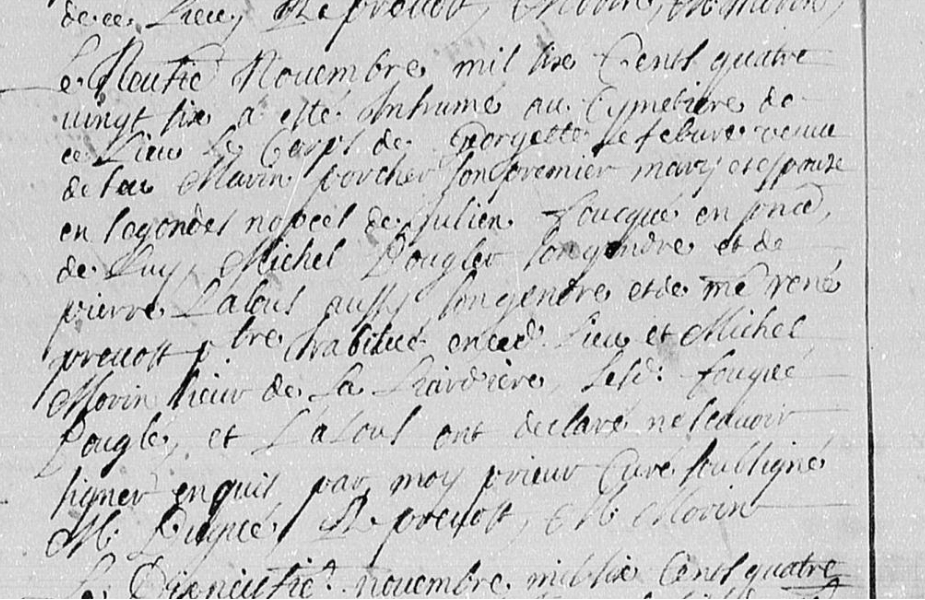 de ce Lieu, R Le prevost, M Morin,
Le Neufie Novembre mil six Cents quatre
vingt six a esté Inhumé au Cymetiere de
ce Lieu Le Corps de Georgette Lefebure veuue
de feu Marin porcher son premier mary et espouze
en segondes nopces de Julien foucqué en pnce,
de Luy, Michel Douglet son gendre et de
pierre Lalous aussy son gendre et de me rené
prevost pbtre habitué en ced. Lieu et Michel
Morin sieur de La, Lesd. fouqué
Douglé, et LaLous ont declaré ne scavoir
signer enquis par moy prieur Curé soubsigné
M. R Le prevost, M Morin
Le novembre mil six Cents quatre